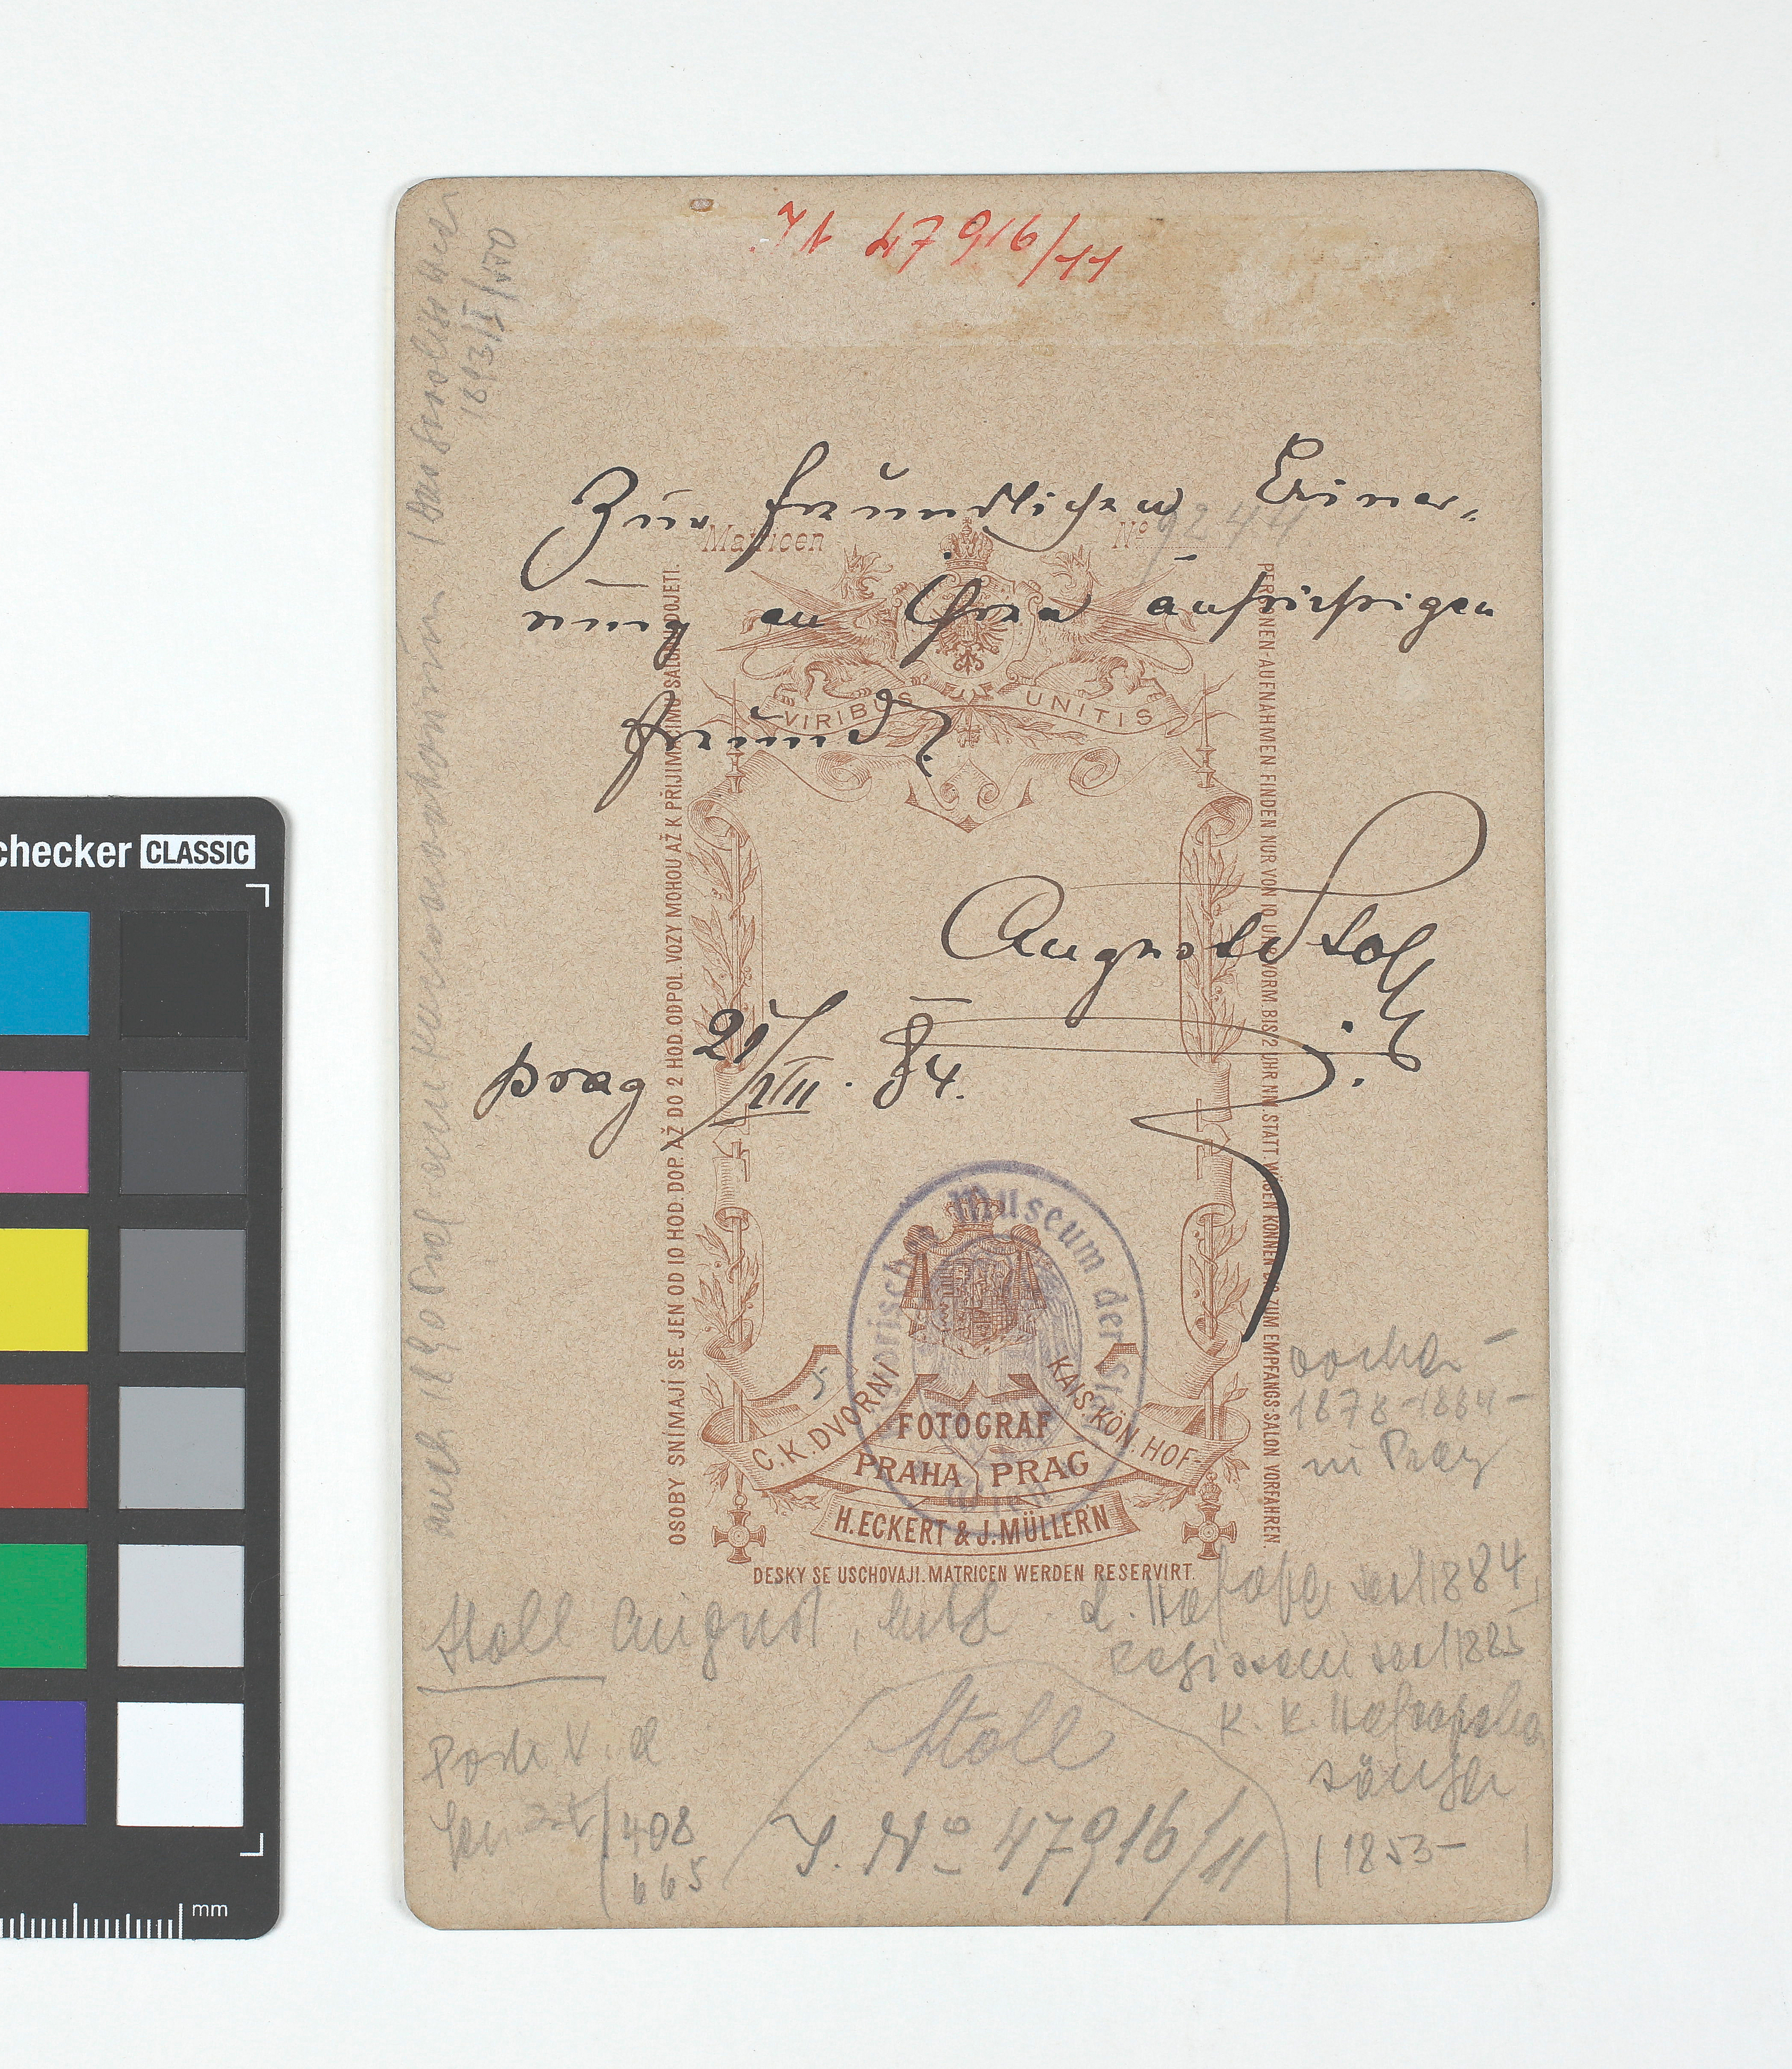 JN 47916/11
Zur freundlichen Erinner-
nung an Ihren aufrichtigen
Freund
August Stoll
Prag 21/VII. 84.
Matricen No 9244
VIRIBUS UNITIS
OSOBY SNÍMAJÍ SE JEN OD 10 HOD. DOP. AŽ DO 2 HOD. ODPOL. VOZY MOHOU AŽ K PŘIJÍMACÍMU SALONU DOJETI.
PERSONEN-AUFNAHMEN FINDEN NUR VON 10 UHR VORM. BIS 2 UHR NM. STATT. WAGEN KÖNNEN BIS ZUM EMPFANGS-SALON VORFAHREN.
Historisches Museum der Stadt Wien
5
C. K. DVORNÍ KAIS. KÖN. HOF-
FOTOGRAF
PRAHA PRAG
H. ECKERT & J. MÜLLERN
DESKY SE USCHOVAJÍ. MATRICEN WERDEN RESERVIRT.
vorher
1878-1884-
in Prag
Stoll August,
k. Hofoper seit 1884,
Regisseur seit 1885
k. k. Hofopern
sänger
(1853-
Stoll
J. No 47916/11
408
665
checker CLASSIC
mm